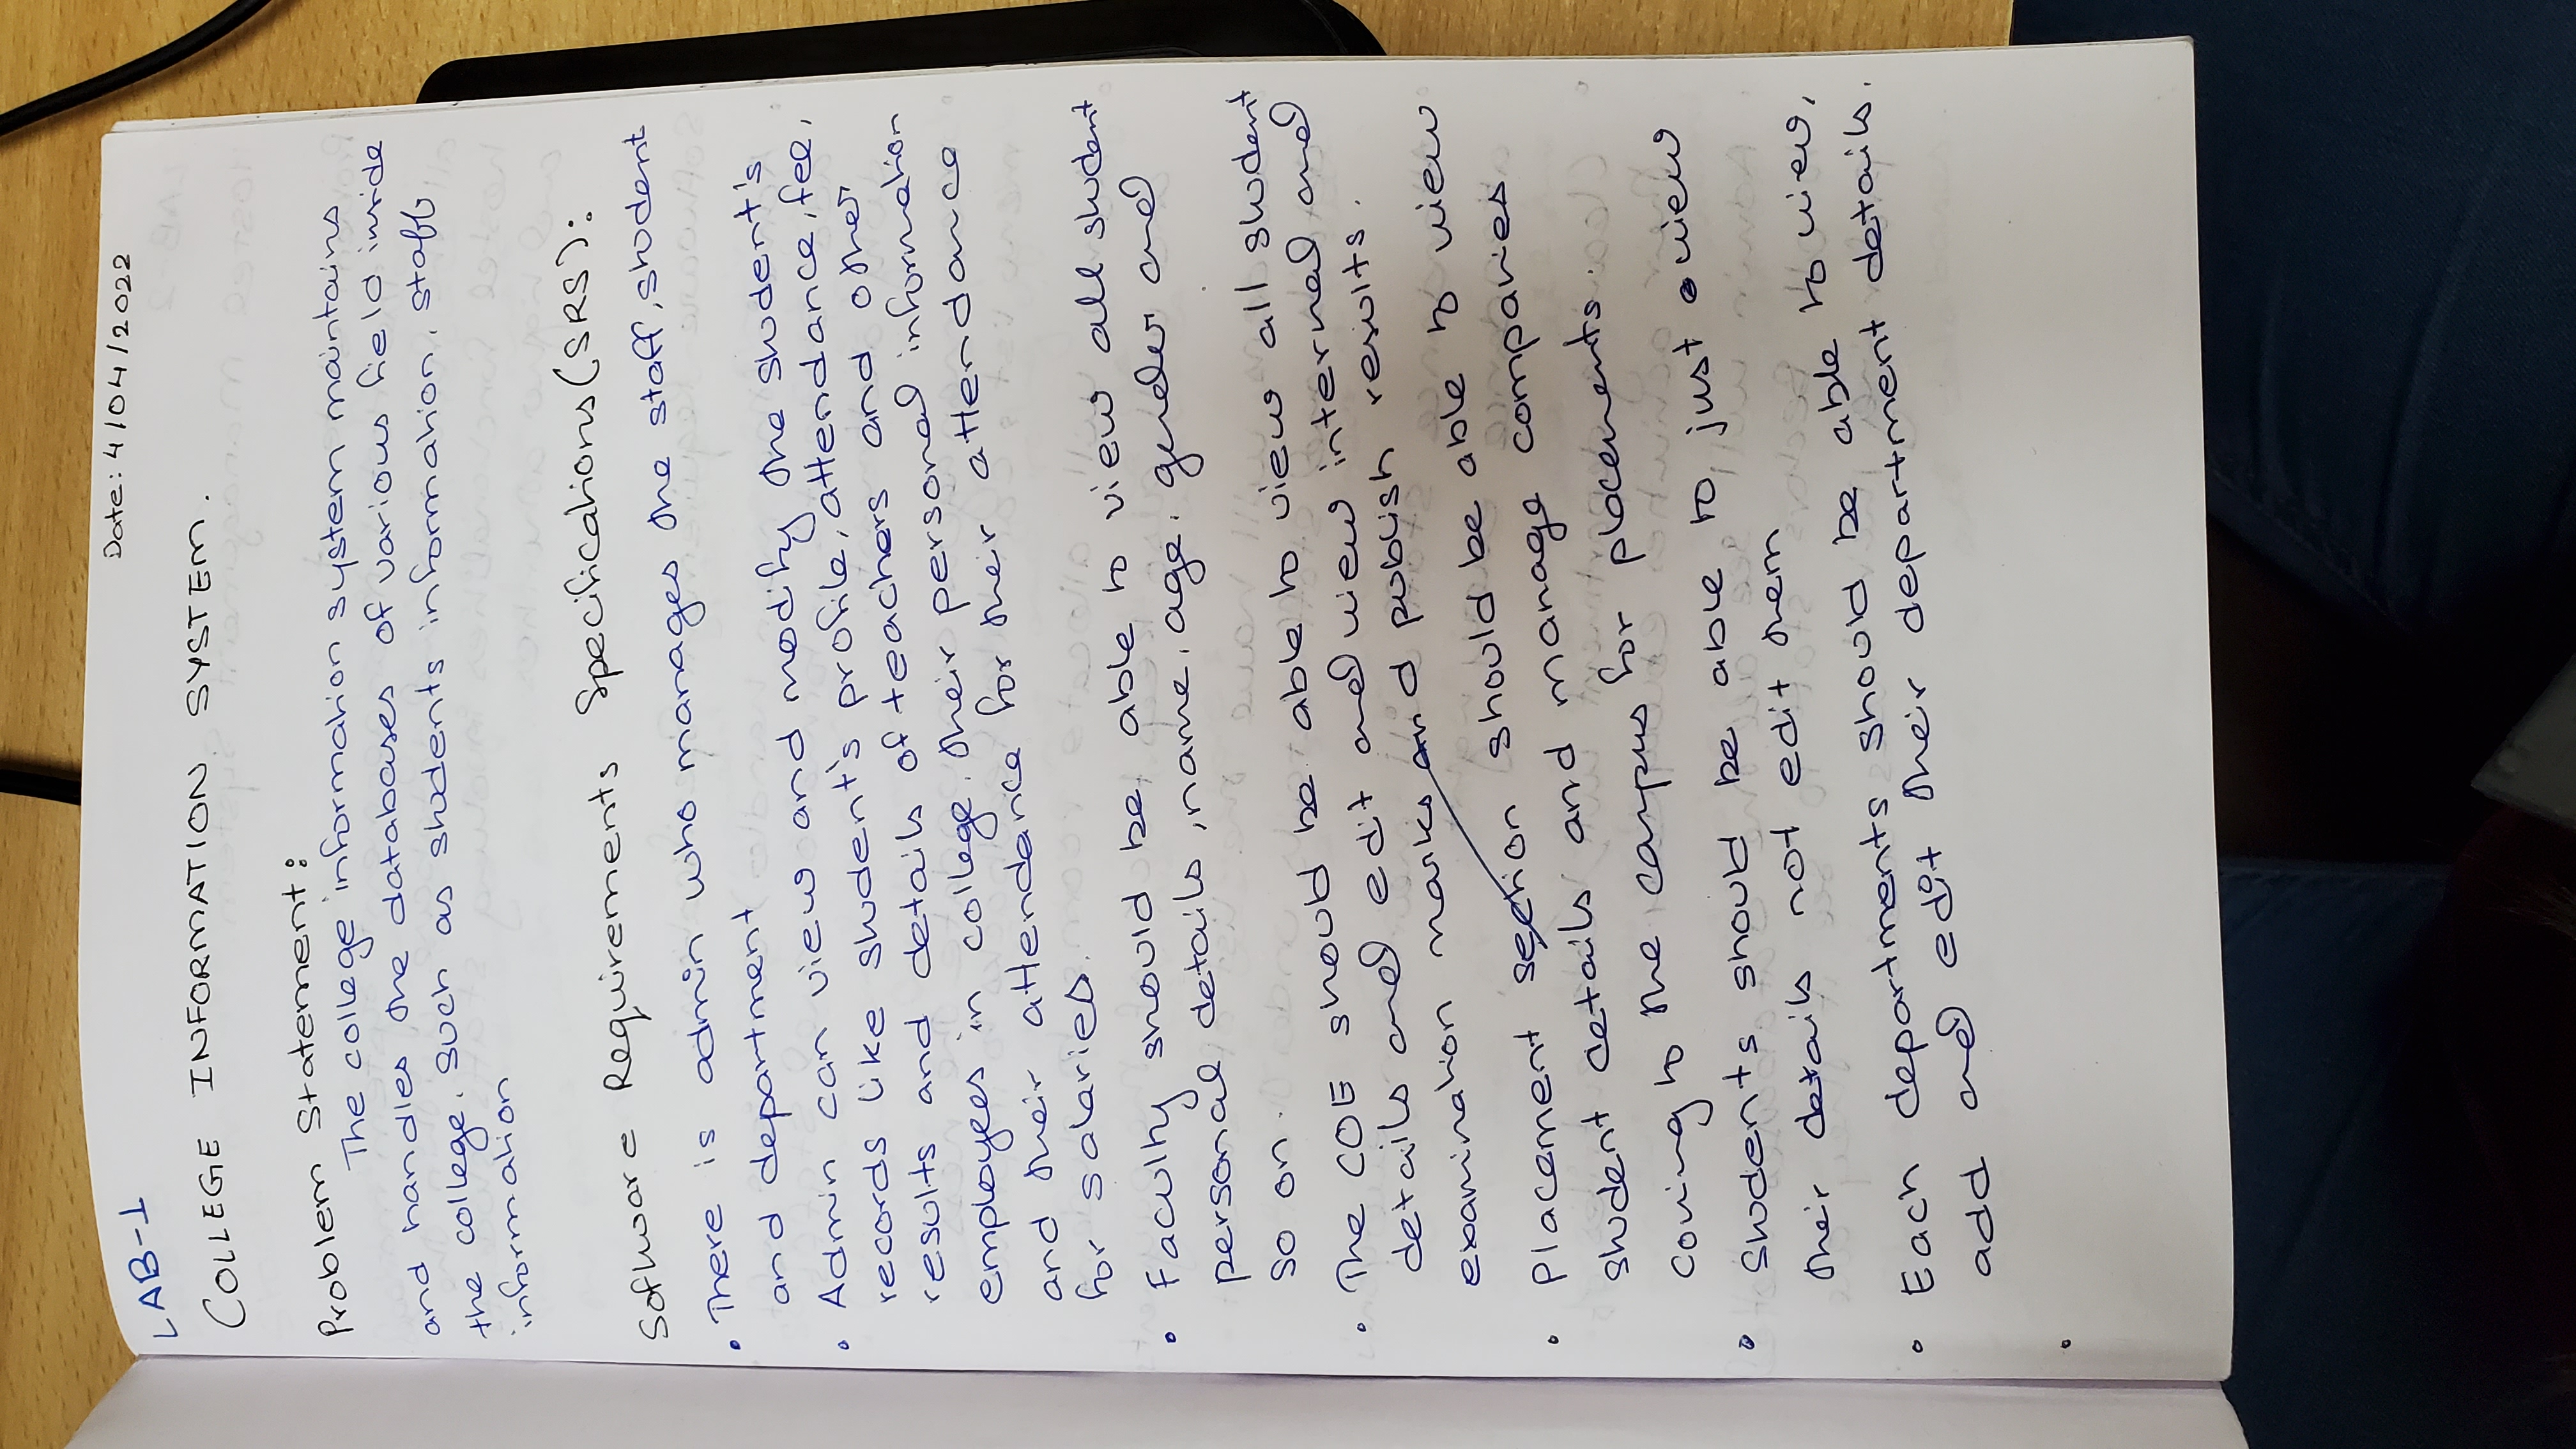 Date: 4/04/2022
LAB-1
COLLEGE INFORMATION SYSTEM.
Problem Statement:
The college information system maintains
and handles the databases of various field inside
the college. such as students information, staff
information
Software Requirements Specifications (SRS):
• There is admin who manages the staff, student
and department
• Admin can view and modify the student's
records like student's profile, attendance, fee,
results and details of teachers and other
employees in college. their personal information
and their attendance for their attendance
for salaries.
• Faculty should be able to view all student
personal details, name, age, gender and
so on.
• The COE should be able to view all student
details and edit and view internal and
examination marks and publish results.
• Placement section should be able to view
student details and manage companies
coming to the campus for placements.
• Students should be able to just view
their details not edit them
• Each departments should be able to view,
add and edit their department details.
•